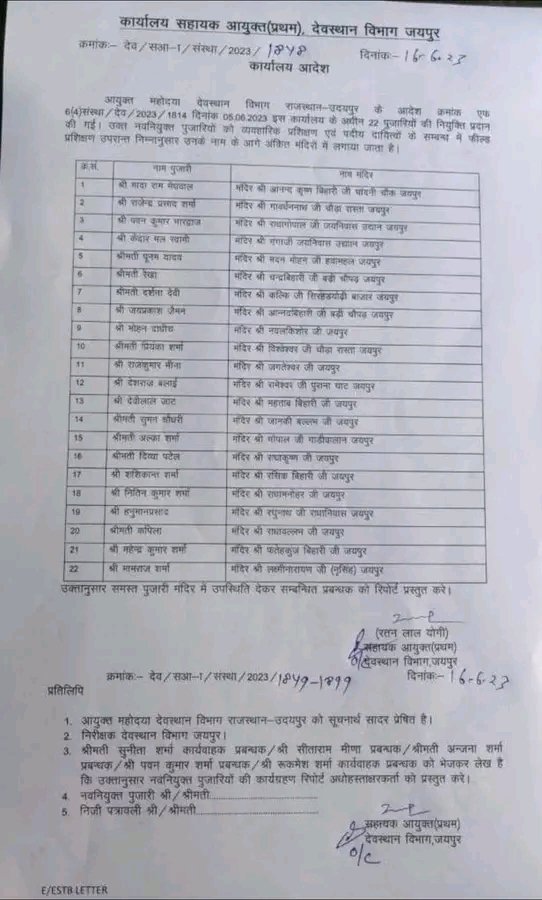 कार्यालय सहायक आयुक्त(प्रथम), देवस्थान विभाग जयपुर
क्रमांकः– देव/सआ–I/संस्था/2023/ 1848 दिनांकः– 16-6-23
कार्यालय आदेश
आयुक्त महोदया देवस्थान विभाग राजस्थान–उदयपुर के आदेश क्रमांक एफ
6(4)संस्था/देव/2023/1814 दिनांक 05.06.2023 इस कार्यालय के अधीन 22 पुजारियों की नियुक्ति प्रदान
की गई। उक्त नवनियुक्त पुजारियों को व्यवहारिक प्रशिक्षण एवं पदीय दायित्वों के सम्बन्ध में फील्ड
प्रशिक्षण उपरान्त निम्नानुसार उनके नाम के आगे अंकित मंदिरों में लगाया जाता है।
क्र.सं. नाम पुजारी नाम मंदिर
1 श्री मादा राम मेघवाल मंदिर श्री आनन्द कृष्ण बिहारी जी चांदनी चौक जयपुर
2 श्री राजेन्द्र प्रसाद शर्मा मंदिर श्री गोवर्धननाथ जी चौड़ा रास्ता जयपुर
3 श्री पवन कुमार भारद्वाज मंदिर श्री राधागोपाल जी जयनिवास उद्यान जयपुर
4 श्री केदार मल स्वामी मंदिर श्री गंगाजी जयनिवास उद्यान जयपुर
5 श्रीमती पूनम यादव मंदिर श्री मदन मोहन जी हवामहल जयपुर
6 श्रीमती रेखा मंदिर श्री चन्द्रबिहारी जी बड़ी चौपड़ जयपुर
7 श्रीमती दर्शना देवी मंदिर श्री कल्कि जी सिरहड्योढ़ी बाजार जयपुर
8 श्री जयप्रकाश जैमन मंदिर श्री आनन्दबिहारी जी बड़ी चौपड़ जयपुर
9 श्री मोहन दाधीच मंदिर श्री नवलकिशोर जी जयपुर
10 श्रीमती प्रियंका शर्मा मंदिर श्री विश्वेश्वर जी चौड़ा रास्ता जयपुर
11 श्री राजकुमार मीना मंदिर श्री जगतेश्वर जी जयपुर
12 श्री देशराज बलाई मंदिर श्री रामेश्वर जी पुराना घाट जयपुर
13 श्री देवीलाल जाट मंदिर श्री महताब बिहारी जी जयपुर
14 श्रीमती सुमन चौधरी मंदिर श्री जानकी बल्लभ जी जयपुर
15 श्रीमती अल्का शर्मा मंदिर श्री गोपाल जी गाडीवालान जयपुर
16 श्रीमती दिव्या पटेल मंदिर श्री राधाकृष्ण जी जयपुर
17 श्री शशिकान्त शर्मा मंदिर श्री रसिक बिहारी जी जयपुर
18 श्री नितिन कुमार शर्मा मंदिर श्री राधामनोहर जी जयपुर
19 श्री हनुमानप्रसाद मंदिर श्री रघुनाथ जी राधानिवास जयपुर
20 श्रीमती कपिला मंदिर श्री राधावल्लभ जी जयपुर
21 श्री महेन्द्र कुमार शर्मा मंदिर श्री फतेहकुंज बिहारी जी जयपुर
22 श्री मामराज शर्मा मंदिर श्री लक्ष्मीनारायण जी (नृसिंह) जयपुर
उक्तानुसार समस्त पुजारी मंदिर में उपस्थिति देकर सम्बन्धित प्रबन्धक को रिपोर्ट प्रस्तुत करे।
(रतन लाल योगी)
सहायक आयुक्त(प्रथम)
O/C देवस्थान विभाग,जयपुर
क्रमांकः– देव/सआ–I/संस्था/2023/ 1849-1899 दिनांकः– 16-6-23
प्रतिलिपि
1. आयुक्त महोदया देवस्थान विभाग राजस्थान–उदयपुर को सूचनार्थ सादर प्रेषित है।
2. निरीक्षक देवस्थान विभाग जयपुर।
3. श्रीमती सुनीता शर्मा कार्यवाहक प्रबन्धक/श्री सीताराम मीणा प्रबन्धक/श्रीमती अन्जना शर्मा
प्रबन्धक/श्री पवन कुमार शर्मा प्रबन्धक/श्री रूकमेश शर्मा कार्यवाहक प्रबन्धक को भेजकर लेख है
कि उक्तानुसार नवनियुक्त पुजारियों की कार्यग्रहण रिपोर्ट अधोहस्ताक्षरकर्ता को प्रस्तुत करे।
4. नवनियुक्त पुजारी श्री/श्रीमती..............................
5. निजी पत्रावली श्री/श्रीमती..............................
सहायक आयुक्त(प्रथम)
देवस्थान विभाग,जयपुर
O/C
E/ESTB LETTER